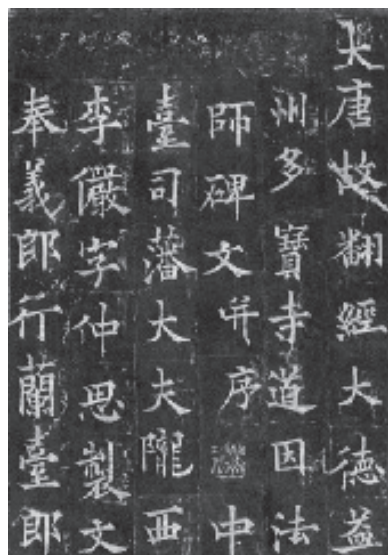 大唐故翻經大德益
州多寶寺道因法
師碑文并序 中
臺司藩大夫隴西
李儼字仲思製文
奉義郎行蘭臺郎